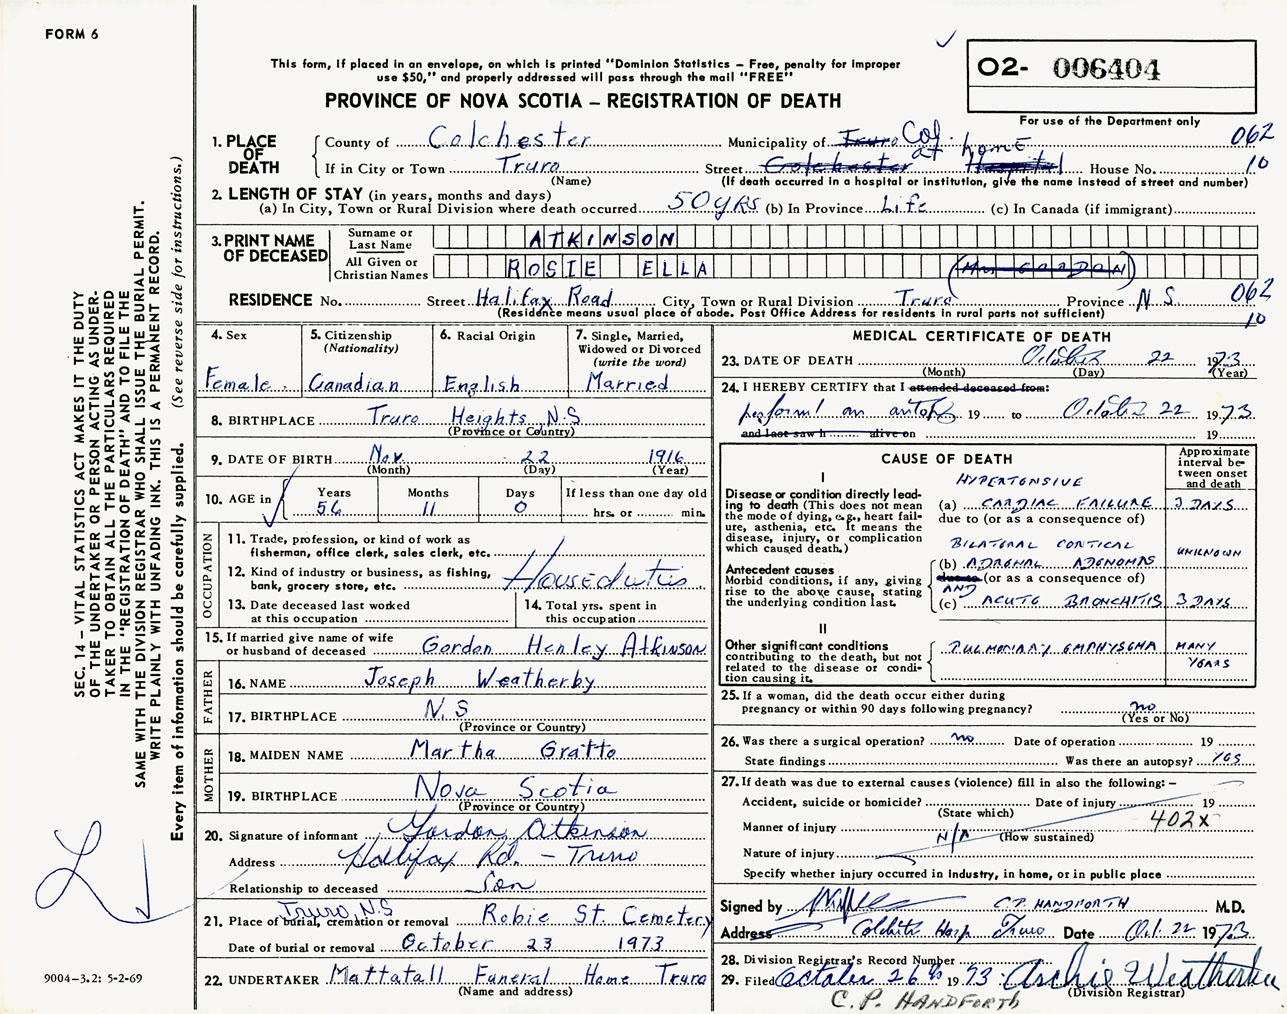 FORM 6
This form, if placed in an envelope, on which is printed "Dominion Statistics – Free, penalty for improper
use $50," and properly addressed will pass through the mail "FREE"
PROVINCE OF NOVA SCOTIA – REGISTRATION OF DEATH
02- 006404
For use of the Department only
062
10
1. PLACE OF DEATH
County of Colchester Municipality of Truro Col.
If in City or Town Truro Street Colchester Hospital at home House No.
(Name) (If death occurred in a hospital or institution, give the name instead of street and number)
2. LENGTH OF STAY (in years, months and days)
(a) In City, Town or Rural Division where death occurred 50 yrs (b) In Province Life (c) In Canada (if immigrant)
3. PRINT NAME OF DECEASED
Surname or Last Name ATKINSON
All Given or Christian Names ROSIE ELLA (Mrs GORDON)
RESIDENCE No. Street Halifax Road City, Town or Rural Division Truro Province N.S. 062
(Residence means usual place of abode. Post Office Address for residents in rural parts not sufficient) 10
4. Sex
Female
5. Citizenship
(Nationality)
Canadian
6. Racial Origin
English
7. Single, Married,
Widowed or Divorced
(write the word)
Married
8. BIRTHPLACE Truro Heights, N.S
(Province or Country)
9. DATE OF BIRTH Nov. 22 1916
(Month) (Day) (Year)
10. AGE in
Years Months Days If less than one day old
56 11 0 hrs. or min.
OCCUPATION
11. Trade, profession, or kind of work as
fisherman, office clerk, sales clerk, etc.
12. Kind of industry or business, as fishing,
bank, grocery store, etc. Houseduties
13. Date deceased last worked
at this occupation
14. Total yrs. spent in
this occupation
15. If married give name of wife
or husband of deceased Gordon Henley Atkinson
FATHER
16. NAME Joseph Weatherby
17. BIRTHPLACE N.S
(Province or Country)
MOTHER
18. MAIDEN NAME Martha Gratto
19. BIRTHPLACE Nova Scotia
(Province or Country)
20. Signature of informant Gordon Atkinson
Address Hallifax Rd. – Truro
Relationship to deceased Son
Truro, N.S
21. Place of burial, cremation or removal Robie St. Cemetery
Date of burial or removal October 23 1973
22. UNDERTAKER Mattatall Funeral Home Truro
(Name and address)
MEDICAL CERTIFICATE OF DEATH
23. DATE OF DEATH October 22 1973
(Month) (Day) (Year)
24. I HEREBY CERTIFY that I attended deceased from:
perform! an autopsy 19 to October 22 1973
and last saw h alive on 19
CAUSE OF DEATH
Approximate
interval be-
tween onset
and death
I
Disease or condition directly lead-
ing to death (This does not mean
the mode of dying, e.g., heart fail-
ure, asthenia, etc. It means the
disease, injury, or complication
which caused death.)
HYPERTENSIVE
(a) CARDIAC FAILURE 3 DAYS
due to (or as a consequence of)
BILATERAL CORTICAL
Antecedent causes
Morbid conditions, if any, giving
rise to the above cause, stating
the underlying condition last.
(b) ADRENAL ADENOMAS UNKNOWN
due to (or as a consequence of)
AND
(c) ACUTE BRONCHITIS 3 DAYS
II
Other significant conditions
contributing to the death, but not
related to the disease or condi-
tion causing it.
PULMONARY EMPHYSEMA MANY
YEARS
25. If a woman, did the death occur either during
pregnancy or within 90 days following pregnancy? no
(Yes or No)
26. Was there a surgical operation? no Date of operation 19
State findings Was there an autopsy? YES
27. If death was due to external causes (violence) fill in also the following: –
Accident, suicide or homicide? Date of injury 19
(State which)
402x
Manner of injury N/A
(How sustained)
Nature of injury
Specify whether injury occurred in industry, in home, or in public place
Signed by C.P. HANDFORTH M.D.
Address Colchester Hosp Truro Date Oct. 22 1973
28. Division Registrar's Record Number
29. Filed October 26th 1973 Archie Weatherbee
(Division Registrar)
C. P. HANDFORTH
SEC. 14 – VITAL STATISTICS ACT MAKES IT THE DUTY
OF THE UNDERTAKER OR PERSON ACTING AS UNDER-
TAKER TO OBTAIN ALL THE PARTICULARS REQUIRED
IN THE "REGISTRATION OF DEATH" AND TO FILE THE
SAME WITH THE DIVISION REGISTRAR WHO SHALL ISSUE THE BURIAL PERMIT.
WRITE PLAINLY WITH UNFADING INK. THIS IS A PERMANENT RECORD.
Every item of information should be carefully supplied. (See reverse side for instructions.)
9004–3.2: 5-2-69